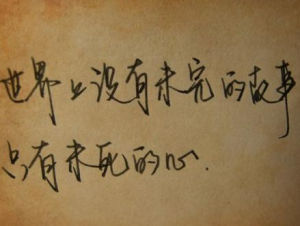 世界上没有未完的故事
只有未死的心.